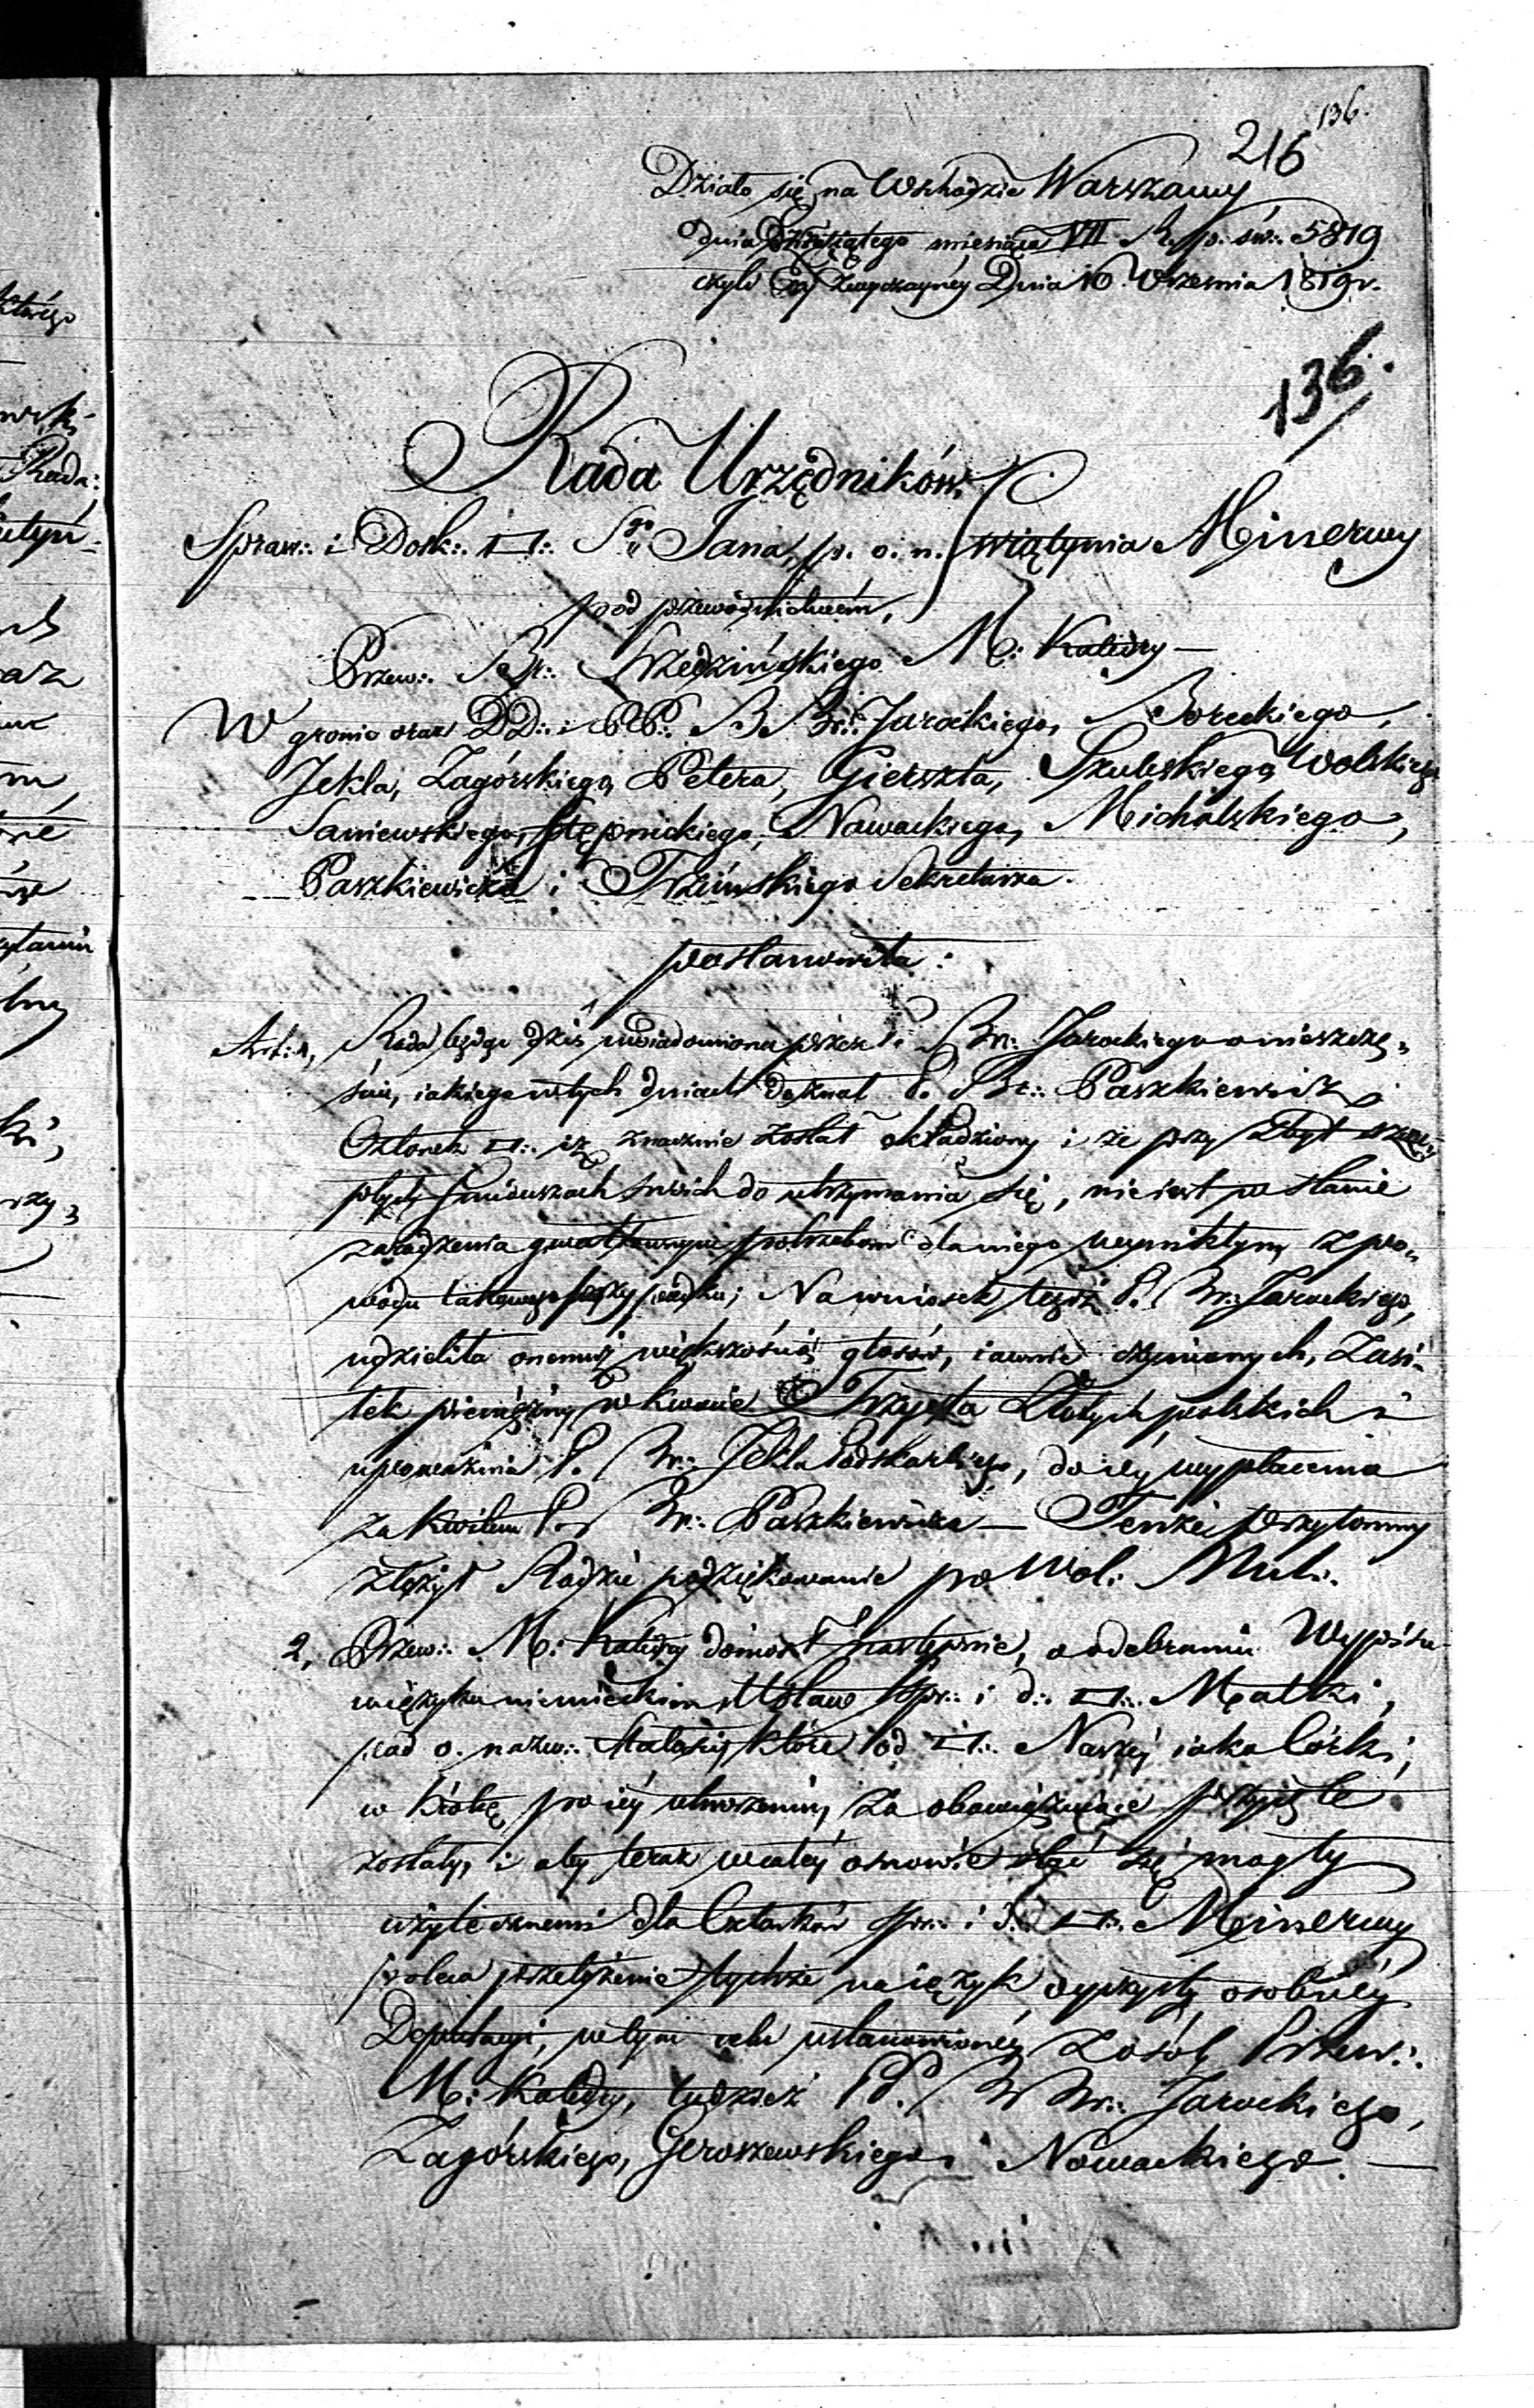 136.
216
Działo się na Wschodzie Warszawy
dnia dziesiątego miesiąca VII R. p. św:. 5819
czyli Ery zwyczaynéy Dnia 10. Września 1819 r.
136.
Rada Urzędników
Spraw:. i Dosk:. □:. Sgo Jana, p. o. n. Swiątynia Minerwy
pod przewodnictwem,
Przew:. Br:. M: Katedry —
W gronie oraz DD:. i PP:. BBr:. Jarockiego, Boreckiego,
Jekla, Zagórskiego, Petera, Gierszta, Szuleskiego, Wolskiego
Janiewskiego, Stępnickiego, Nowackiego, Michalskiego,
Paszkiewicza i Trzcińskiego Sekretarza.
postanowiła:
Art: 1, Rada będąc dziś uwiadomioną przez P. Br:. Jarockiego o nieszczę„
ściu, iakiego w tych dniach doznał P. Br:. Paszkiewicz
Członek □:. iż znacznie został okradziony i że przy zbyt szczu„
płych funduszach swich do utrzymania się, nie iest w stanie
zaradzenia gwałtownym potrzebom dla niego wynikłym z po„
wodu takowego przypadku; Na wniosek tegoż P. Br:. Jarockiego,
udzieliła onemuż większością głosów, iawnie czynionych, Zasi„
łek pieniężny w kwocie Trzysta Złotych polskich i
upoważnia P. Br:. Jekla Podskarbiego, do iéy wypłacenia
za kwitem P. Br:. Paszkiewicza — Tenże przytomny
złożył Radzie podziękowanie po Wol: Mul:.
2, Przew:. M: Katedry doniosł następnie, o odebraniu Wypisu
w ięzyku niemieckim Ustaw Spr:. i d:. □:. Matki,
pod o. nazw:. które od □:. Naszéy iako Córki,
w krótcę po iéy utworzeniu, za obowięzuiące przyięte
zostały, i aby teraz w całéy osnowie stać się mogły
użytecznemi dla Członków Spr:. i d:. □:. Minerwy
poleca przełożenie tychże na ięzyk oyczysty osobnéy
Deputacyi, w tym celu ustanowionéy z osób Przew:.
M: Katedry, tudzież PP. BBr:. Jarockiego,
Zagórskiego, Geroszewskiego i Nowackiego. —